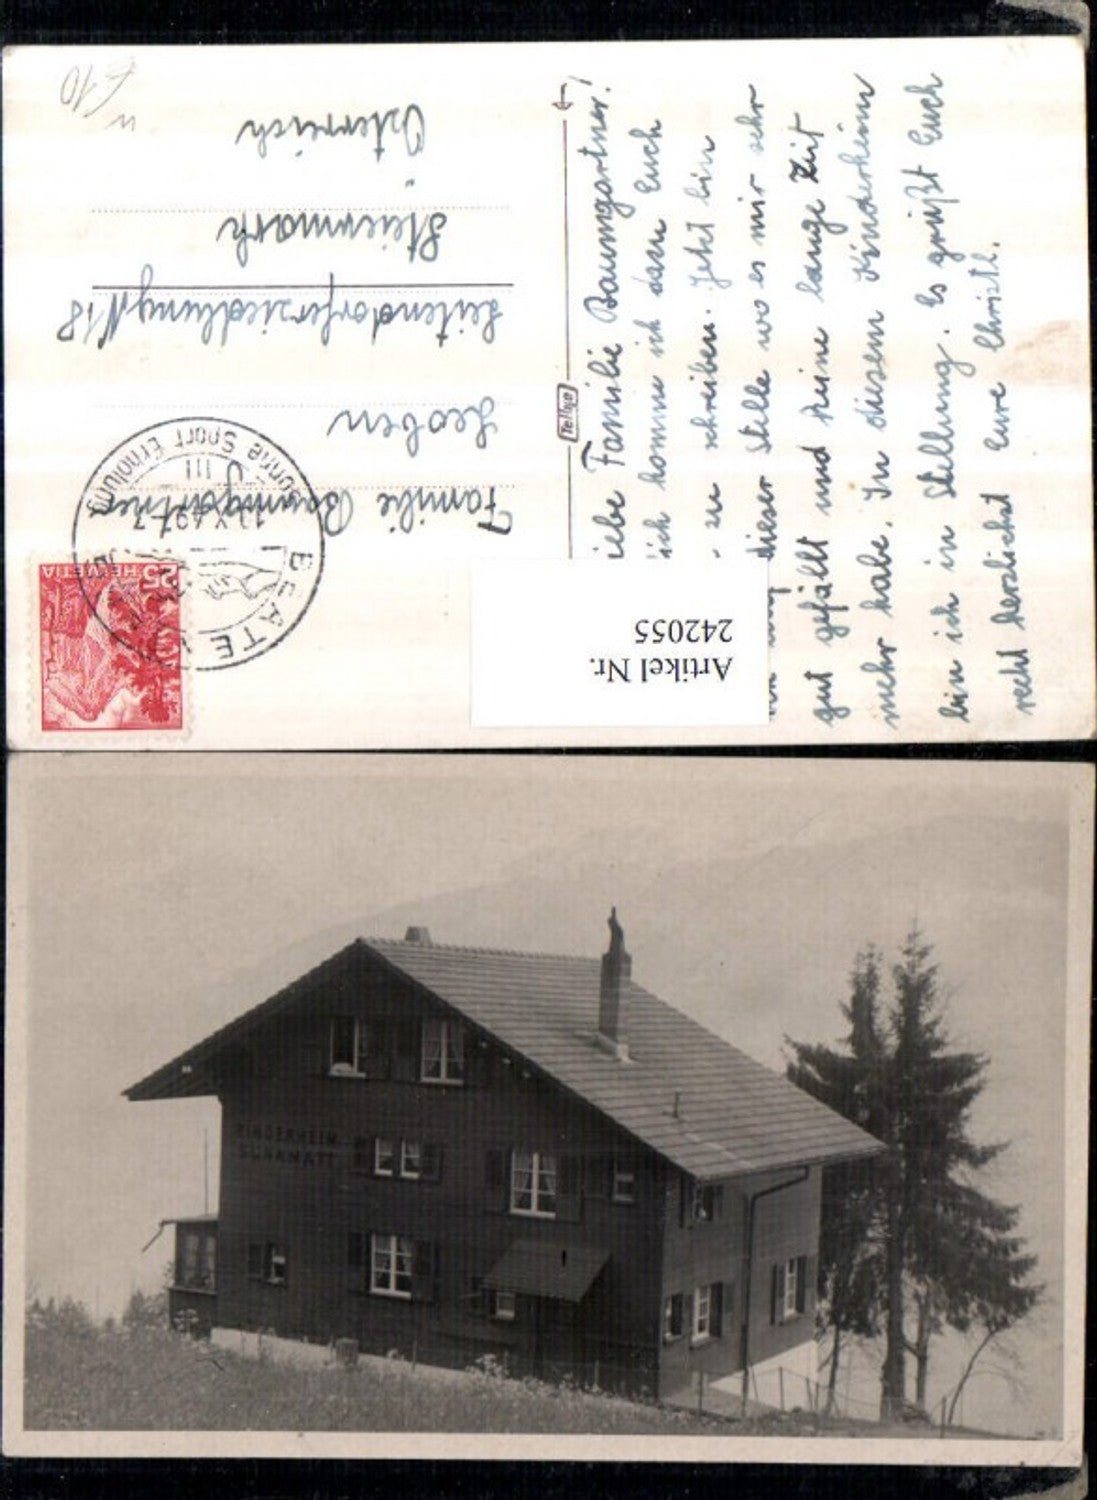 €10
Liebe Familie Baumgartner!
ich komme ich dazu Euch
zu schreiben. Jetzt bin
dieser Stelle wo es mir sehr
gut gefällt und keine lange Zeit
mehr habe. In diesem Kinderheim
bin ich in Stellung. Es grüßt Euch
recht herzlichst Eure Christl.
Tellko
Familie Baumgartner
Leoben
Leitendorfersiedlung N 18
Steiermark
Österreich
BEATE
Sonne Sport Erholung
III
HELVETIA
25
Artikel Nr.
242055
KINDERHEIM